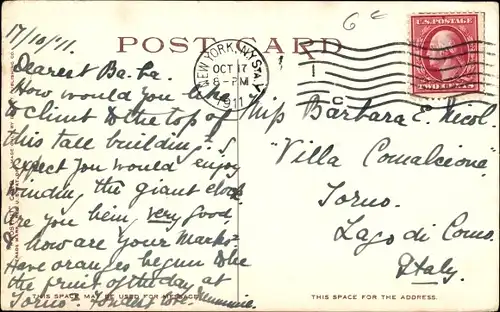 17/10/11.
POST CARD
6c
U.S. POSTAGE
TWO CENTS
NEW YORK, N.Y. STA.
OCT 17
8-PM
1911
C
Dearest Ba-ba.
How would you like
to climb to the top of
this tall building? I
expect you would enjoy
windin, the giant clock
Are you bein, very good
& how are your Marks.
Have oranges begun to be
the fruit of the day at
Torno. Fondest love.
Miss Barbara E. Nicol.
"Villa Comalcione"
Torno.
Lago di Como.
Italy.
THIS SPACE MAY BE USED FOR MESSAGE
THIS SPACE IS FOR THE ADDRESS.